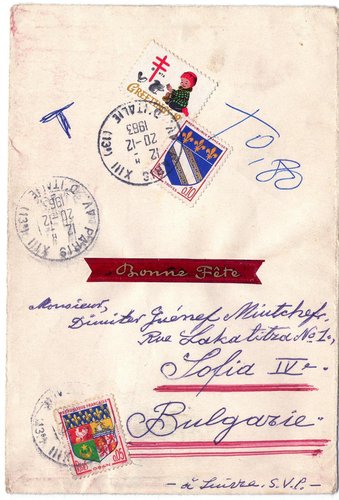 GREETINGS
T
TO.
0,10
PARIS XIII
AV. D'ITALIE (13e)
12 H
20-12
1963
PARIS XIII
AV. D'ITALIE (13e)
12 H
20-12
Bonne Fête
Monsieur,
Dimiter Guénef Mintchef.
Rue Lakatitza No 1.,
Sofia IVe
Bulgarie
REPUBLIQUE FRANÇAISE
0,05
ORAN
XIII
(13e)
à suivre. S.V.P.